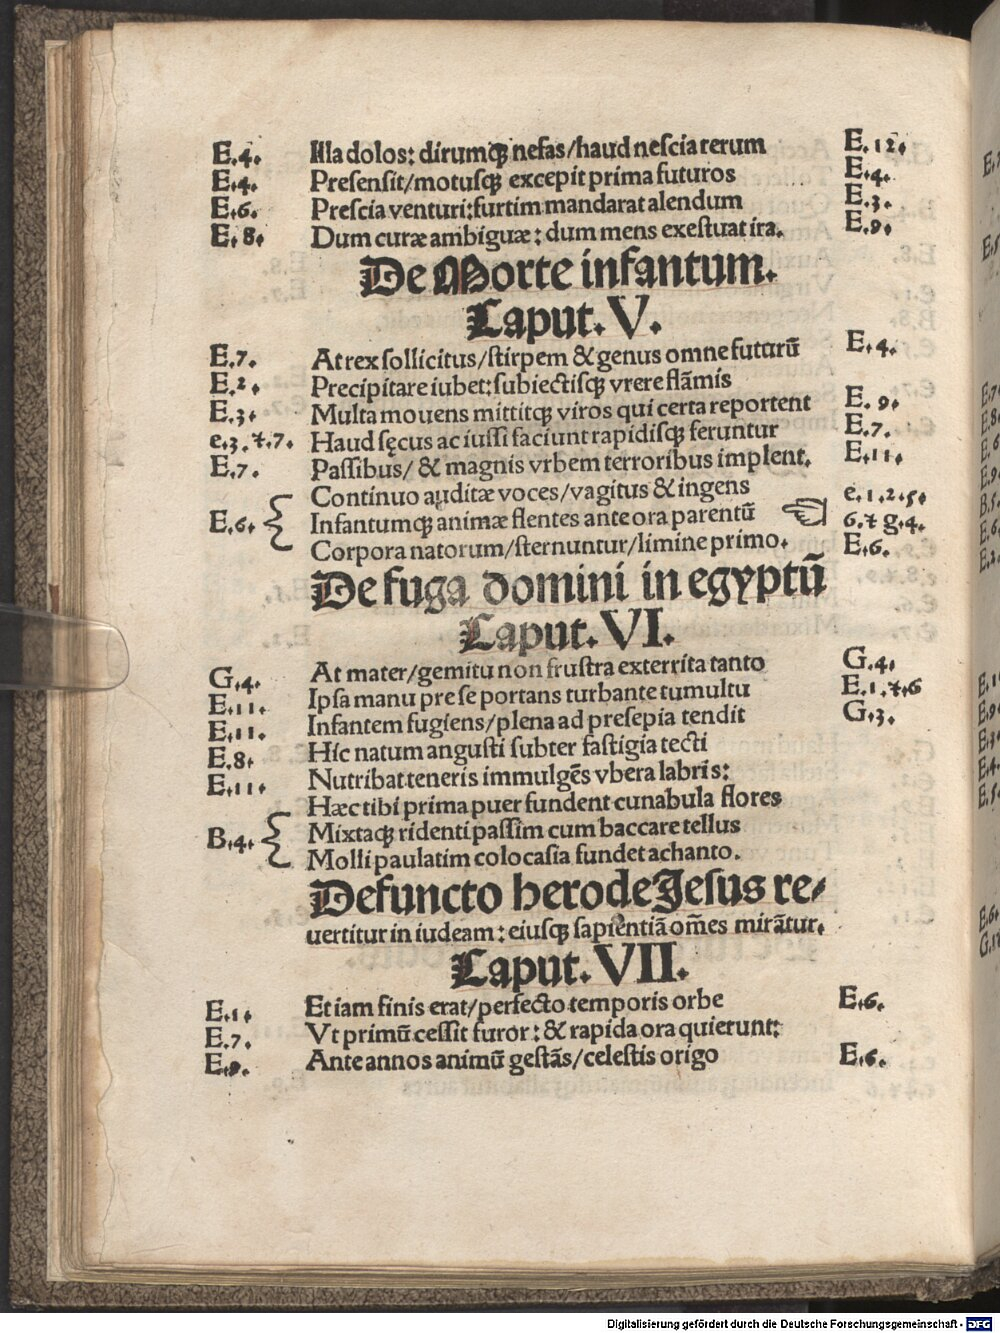 E.4. Illa dolos: dirumqꝫ nefas/haud nescia rerum E.12.
E.4. Presensit/motusqꝫ excepit prima futuros E.4.
E.6. Prescia venturi:furtim mandarat alendum E.3.
E.8. Dum curæ ambiguæ: dum mens exestuat ira. E.9.
De Morte infantum.
Caput. V.
E.7. At rex sollicitus/stirpem & genus omne futurū E.4.
E.2. Precipitare iubet:subiectisqꝫ vrere flāmis
E.3. Multa mouens mittitqꝫ viros qui certa reportent E.9.
e.3.⁊.7. Haud sęcus ac iussi faciunt rapidisqꝫ feruntur E.7.
E.7. Passibus/ & magnis vrbem terroribus implent. E.11.
Continuo auditæ voces/vagitus & ingens e.1.2.5.
E.6. Infantumqꝫ animæ flentes ante ora parentū 6.⁊ g.4.
Corpora natorum/sternuntur/limine primo. E.6.
De fuga domini in egyptū
Caput. VI.
G.4. At mater/gemitu non frustra exterrita tanto G.4.
E.11. Ipsa manu pre se portans turbante tumultu E.1.⁊.6
E.11. Infantem fugiens/plena ad presepia tendit G.3.
E.8. Hic natum angusti subter fastigia tecti
E.11. Nutribat teneris immulgēs vbera labris:
Hæc tibi prima puer fundent cunabula flores
B.4. Mixtaqꝫ ridenti passim cum baccare tellus
Molli paulatim colocasia fundet achanto.
Defuncto herode Jesus re/
uertitur in iudeam: eiusqꝫ sapientiā oēs mirātur.
Caput. VII.
E.1. Et iam finis erat/perfecto temporis orbe E.6.
E.7. Vt primū cessit furor: & rapida ora quierunt:
E.9. Ante annos animū gestās/celestis origo E.6.
Digitalisierung gefördert durch die Deutsche Forschungsgemeinschaft - DFG